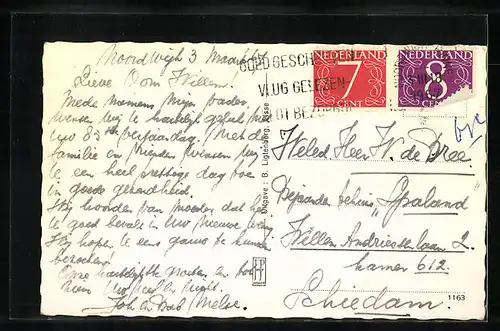 Noordwijk 3 Maart
Lieve Oom Willem!
Mede namens Mijn vader,
wensen wij U hartelijk geluk met
uw 83ste verjaardag. Met de
familie en vrienden wensen wij
U een heel prettige dag toe
in goede gezondheid.
Wij hoorden van moeder dat het
U goed bevalt in Uw nieuwe
Wij hopen U eens gauw te kunnen
bezoeken!
hartelijke groeten en
Uw
Joh en
GOED GESCHREVEN
VLUG GELEZEN
NEDERLAND
7
CENT
NEDERLAND
8
CENT
Uitgave: B. Ligtenberg,
Weled Heer W. de Bree
Bejaarden tehuis "Spaland"
Willem Andriessenlaan 2
kamer 612.
Schiedam.
1163